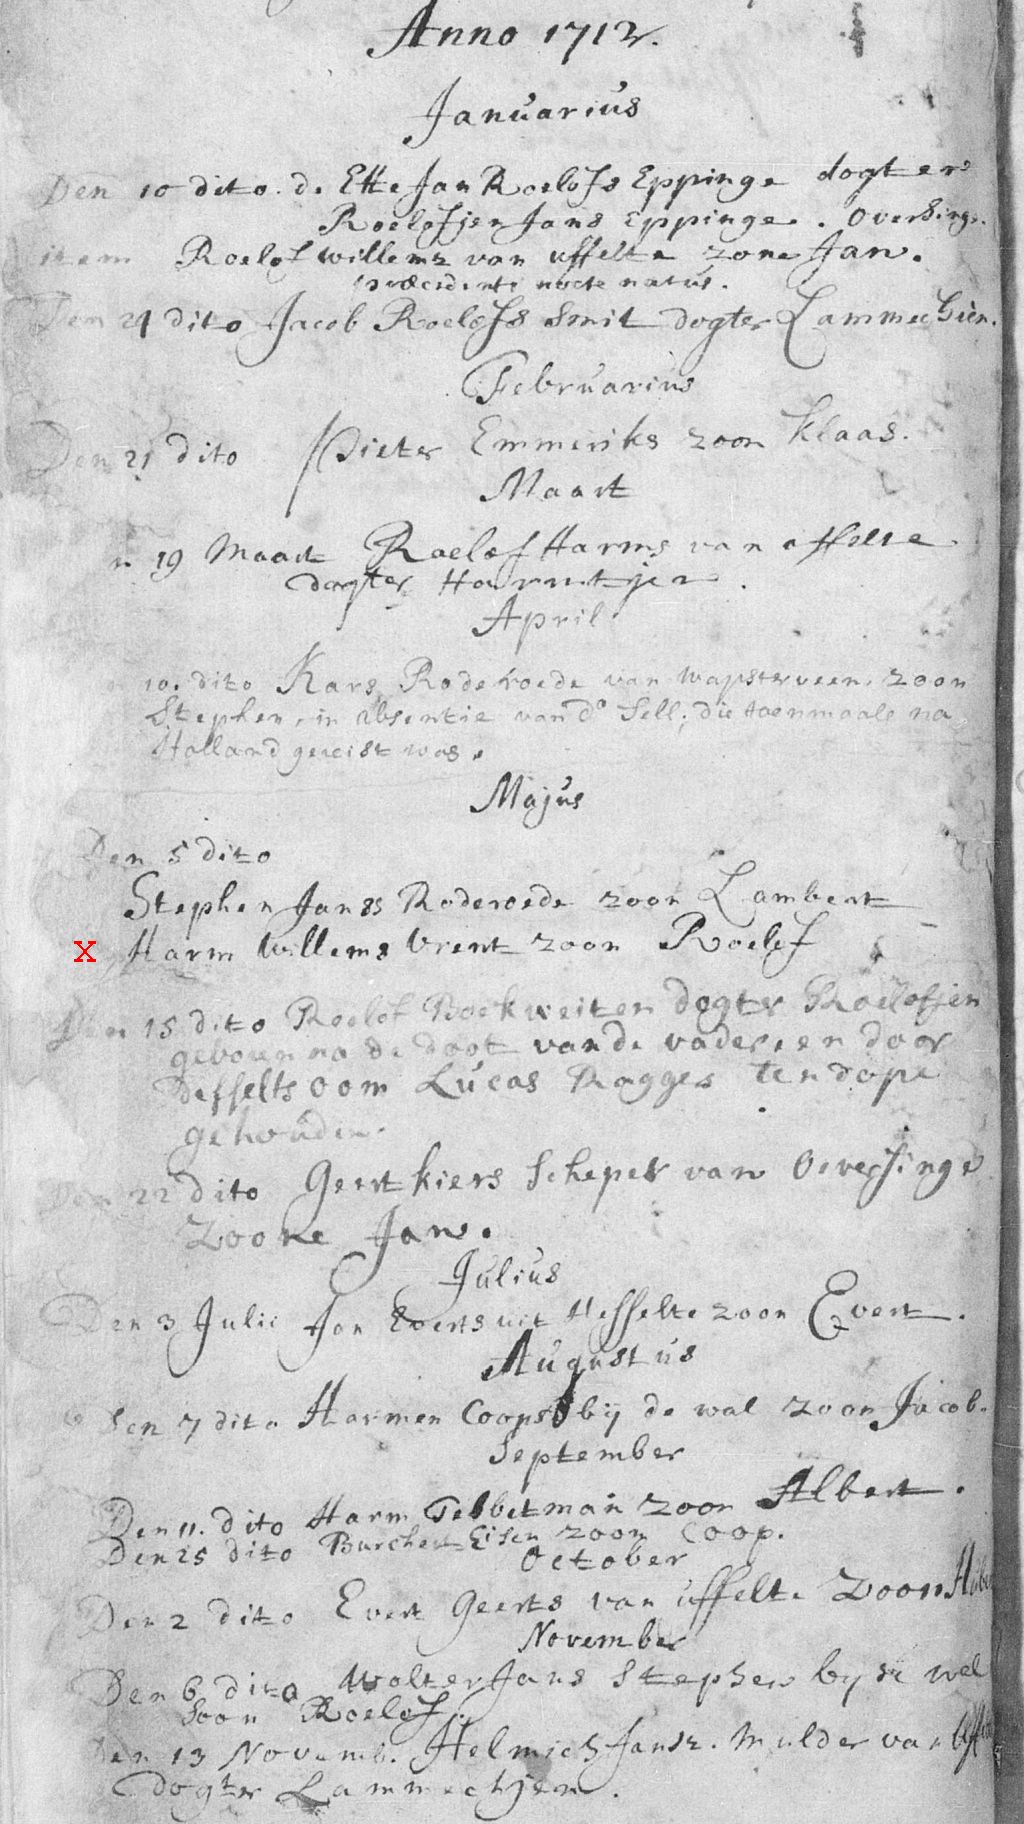 Anno 1712.
Januarius
Den 10 dito. d. Ette Jan Roelofs Eppinge dogters
Roelofjen Jans Eppinge. Oversinge.
item Roelof willems van uffelte zone Jan.
præcedenti nocte natus.
Den 24 dito Jacob Roelofs Smit dogter Lammechien.
Februarius
Den 21 dito Pieter Emmeriks zoon Klaas.
Maart
n 19 Maart Roelof Harms van uffelte
dogter Harmtjen.
April
10. dito Kars Roderoede van wapsterveen. zoon
Stephen, in absentie van do Sell; die toenmaals na
Holland gereist was.
Majus
Den 5 dito
Stephen Janss Roderoede zoon Lambert
X Harm Willems Vrent zoon Roelof
Den 15 dito Roelof Boekweiten dogter Roelofjen
gebouren na de doot van de vader, en door
desselfs oom Lucas Ragges ten dope
gehouden.
Den 22 dito Geert kiers Scheper van Oversinge
Zoone Jan.
Julius
Den 3 Julii Jan Everts uit Uffelte zoon Evert.
Augustus
Den 7 dito Harmen Coops bij de wal zoon Jacob.
September
Den 11. dito Harm Tebbetman zoon Albert.
Den 25 dito Burchert Eisen zoon Coop.
October
Den 2 dito Evert Geerts van uffelte zoon
November
Den 6 dito Wolter Jans Stephen by de wel
soon Roelof.
Den 13 Novemb. Helmich Jansz. Mulder van
dogter Lammechjen.